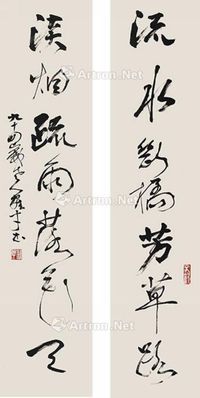 流水断橋芳草路
淡烟疏雨落花天
九十四歲老人羅卞玉
Artron.Net
Artron.Net